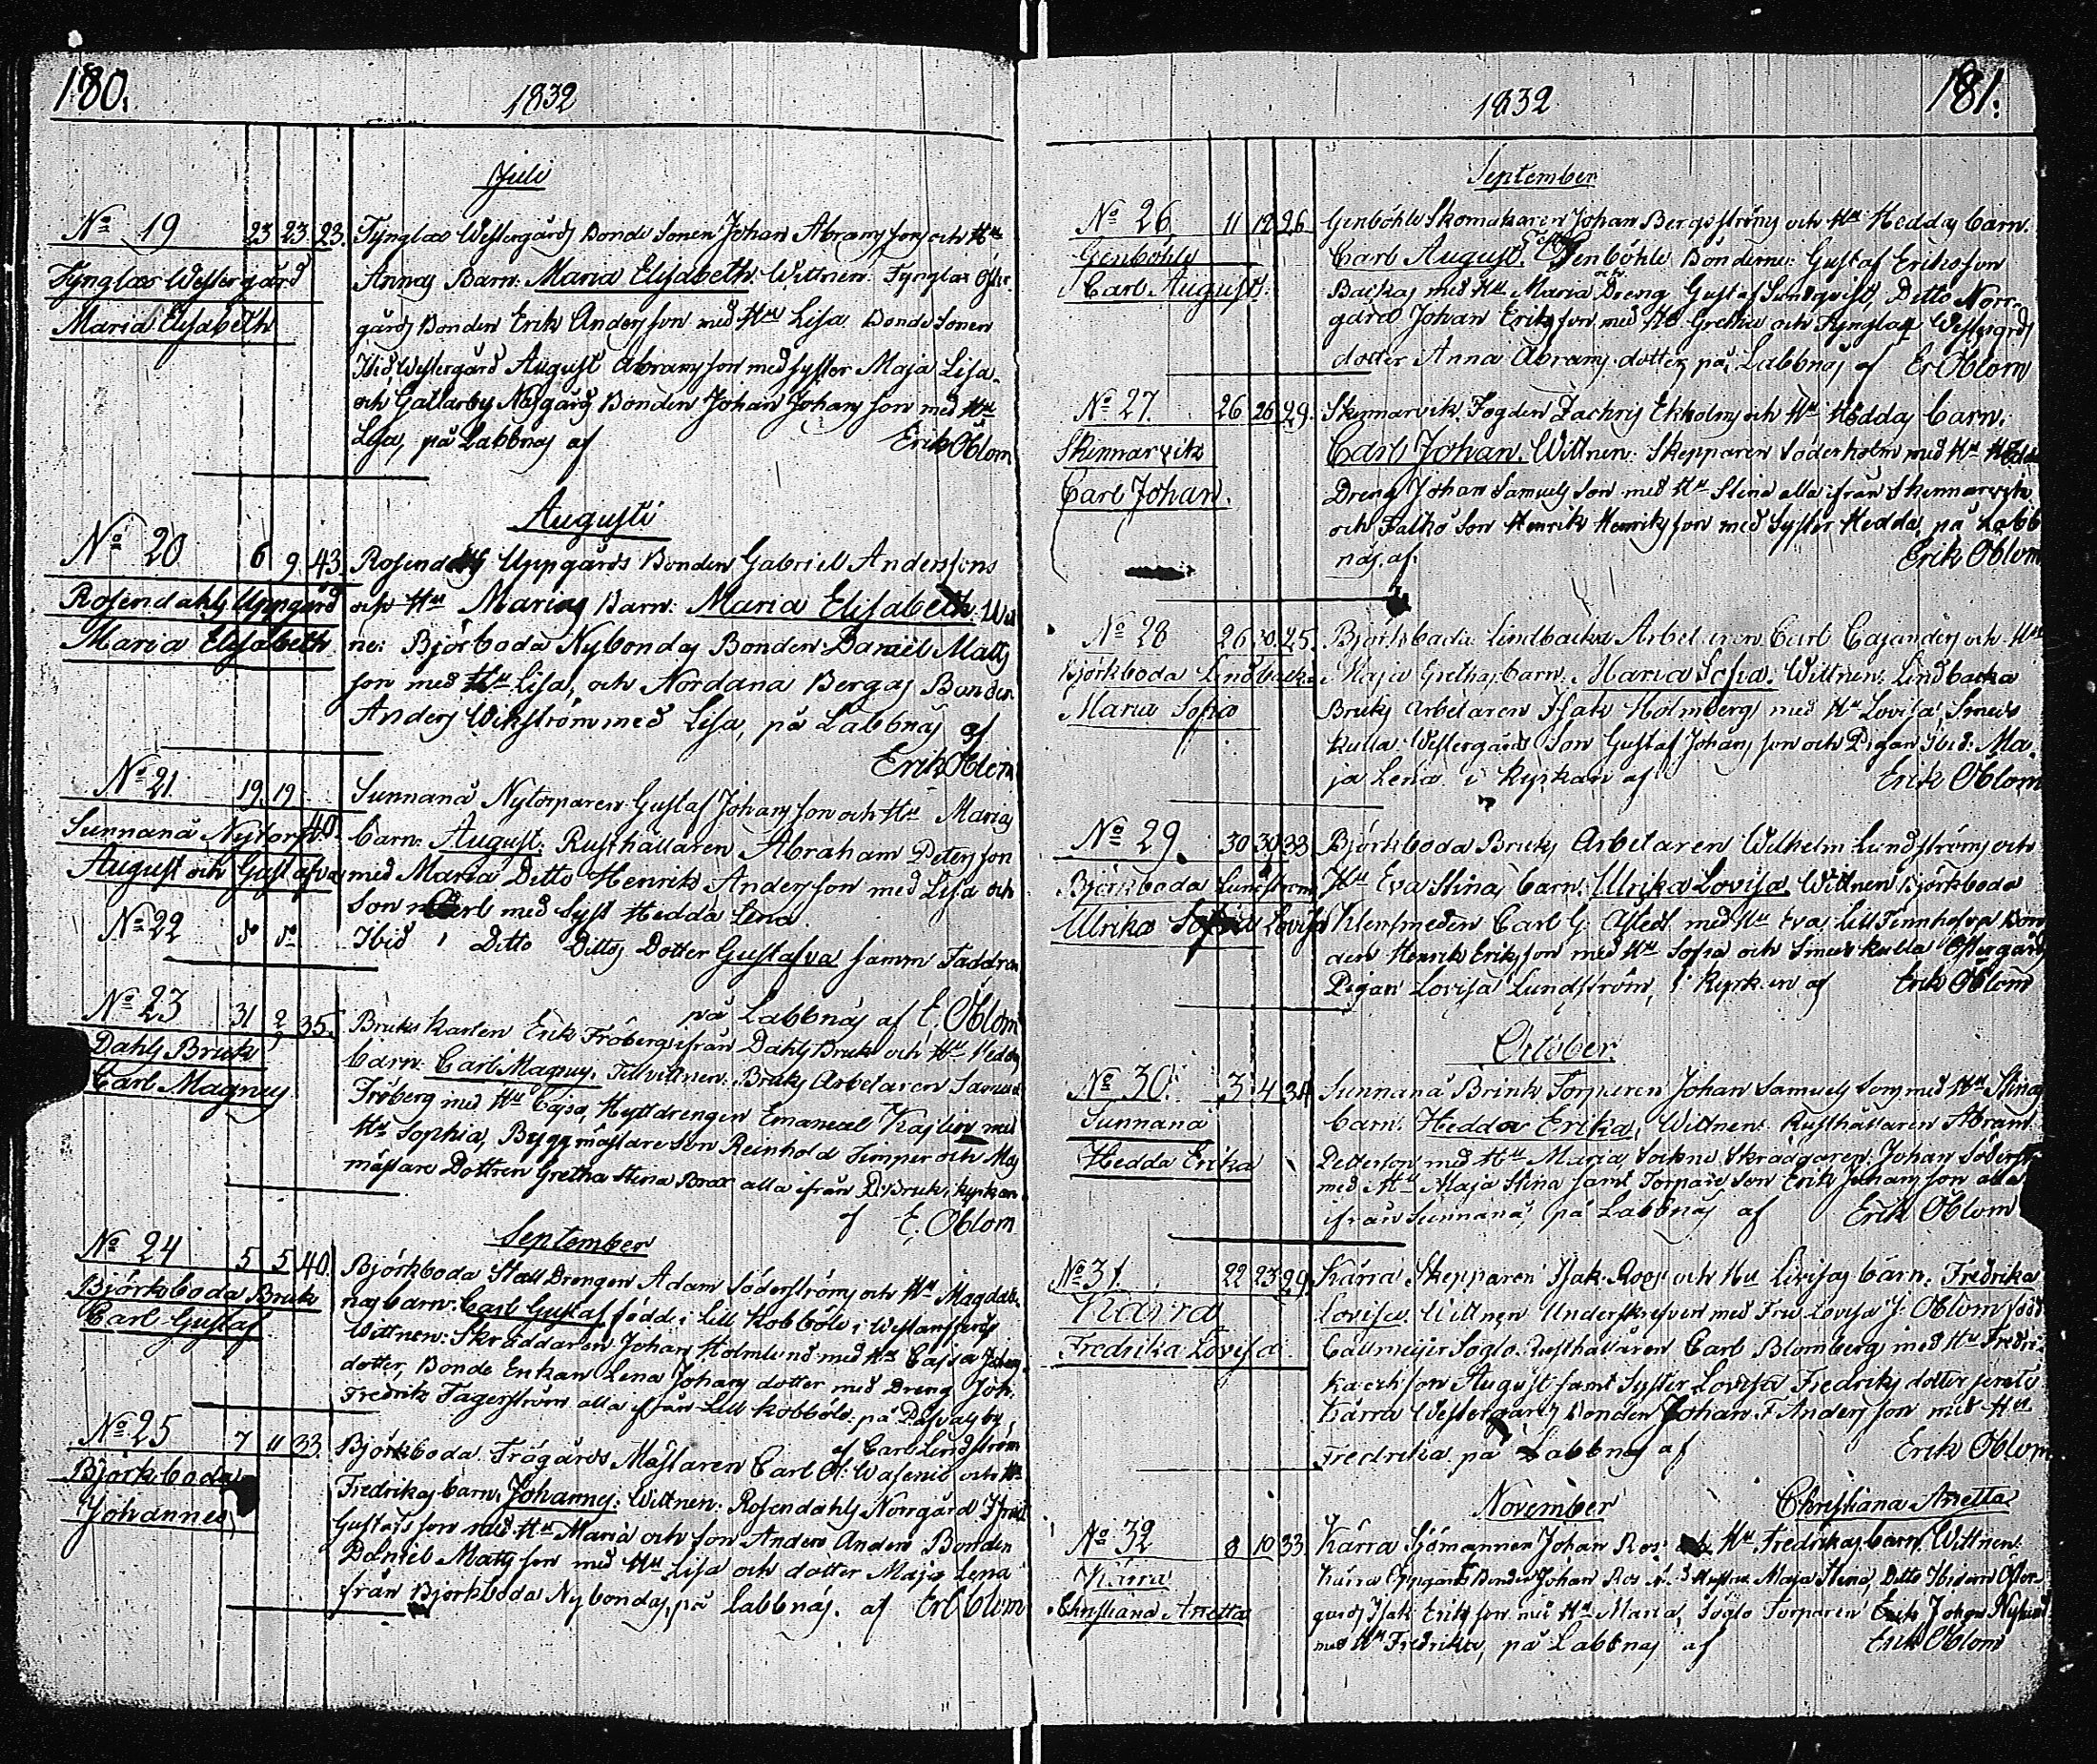 180.
1832
Juli
No 19 23 23 23. Tynglax Westergårds Bonde Sonen Johan Abramsson och Hu
Tynglax Westergård Annas Barn: Maria Elisabeth. Wittnen: Tynglax Öster-
Maria Elisabeth gårds Bonden Erik Andersson med Hu Lisa Bonde Sonen
Ibid Westergård August Abramsson med syster Maja Lisa
och Gallarby Näsgårds Bonden Johan Johansson med Hu
Lisa, på Labbnäs af Erik Öblom
Augusti
No 20 6 9 43 Rosendahls Uppgårds Bonden Gabriel Anderssons
Rosendahls Uppgård och Hu Marias Barn: Maria Elisabeth. Witt
Maria Elisabeth ne: Björboda Nybondas Bonden Daniel Matts
son med Hu Lisa, och Nordana Bergas Bonden
Anders Wikström med Lisa, på Labbnäs af
Erik Öblom
No 21 19 19 Sunnanå Nytorparen Gustaf Johansson och Hu Marias
Sunnanå Nytorp 40. barn: August. Rusthållaren Abraham Petersson
August och Gustafva med Maria Ditto Henrik Andersson med Lisa och
Son med Syst Hedda Lena
No 22 do do Ibid Ditto Dittos Dotter Gustafva samm Faddrar
på Labbnäs af E. Öblom
No 23 31 2 35. Bruks Karlen Erik Fröbergs ifrån Dahls Bruk och Hu Heddas
Dahls Bruk barn: Carl Magnus. Till vittnen: Bruks Arbetaren
Carl Magnus Fröberg med Hu Cajsa, Hyttdrengen Emanuel Kajlin med
Hu Sophia, Byggmästare Son Reinhold Timper och
mästare Dottren Gretha Stina alla ifrån D. Bruk, kyrkan
af E. Öblom
September
No 24 5 5 40. Björkboda Stall Drengen Adam Söderströms och Hu Magdale-
Björkboda Bruk nas barn: Carl Gustaf född i Lill Kobböle i Westanfjerd
Carl Gustaf Wittnen: Skräddaren Johan Holmlund med Hu Cajsa Johans
dotter, Bonde Enkan Lena Johans dotter med Dreng Joh.
Fredrik Fagerström alla ifrån Lill Kobböle. på Dahlsby
af Carl Lindström
No 25 7 11 33. Björkboda Trägårds Mästaren Carl Wasenii och Hu
Björkboda Fredrikas barn: Johannes. Wittnen: Rosendahls Norrgård
Johannes Gustafsson med Hu Maria och son Anders Anden Bonden
Daniel Mattsson med Hu Lisa och dotter Maja Lena
från Björkboda Nybondas, på Labbnäs. af Er Öblom
181.
1832
September
No 26 11 12 26 Genböhle Skomakaren Johan Bergströms och Hu Heddas barn.
Genböhle Carl August. Genböhle Bönderne: Gustaf Eriksson
Carl August Backas med Hu Maria Dreng Gustaf Lundqvist, Ditto Norr-
gård Johan Eriksson med Hu Gretha och Tynglax Westergårds
dotter Anna Abrams dotter, på Labbnäs af Er Öblom
No 27. 26 26 29. Skinnarvik Fogden Zachris Ekholms och Hu Heddas barn.
Skinnarvik Carl Johan. Wittnen: Skepparen Söderholm med Hu Hedda
Carl Johan. Dreng Johan Samuelsson med Hu Stina alla ifrån Skinnarvik
och Falkö Son Henrik Henriksson med Syster Hedda, på Labb
näs. af Erik Öblom
No 28 26 30 25. Björkboda Lindbacka Arbetaren Carl Cajanders och Hu
Björkboda Lindbacka Maja Grethas barn. Maria Sofia. Wittnen: Lindbacka
Maria Sofia Bruks Arbetaren Isak Holmberg med Hu Lovisa, Smeds
kulla Westergårds Son Gustaf Johansson och Pigan Ibid: Ma-
ja Lena i Kyrkan af Erik Öblom
No 29. 30 30 33 Björkboda Bruks Arbetaren Wilhelm Lundströms och
Björkboda Lundström Hu Eva Stinas barn. Ulrika Lovisa. Wittnen Björkboda
Ulrika Sofia Lovisa Klensmeden Carl G. Åstedt med Hu Eva, Lill Finnhofva Bon
den Henrik Eriksson med Hu Sofia och Smedskulla Östergårds
Pigan Lovisa Lundström, i Kyrkan af Erik Öblom
October.
No 30. 3 4 34 Sunnanå Brink Torparen Johan Samuelssons med Hu Stinas
Sunnanå barn. Hedda Erika, Wittnen: Rusthållaren Abram
Hedda Erika Petterson med Hu Maria, Sockne Skräddaren Johan Söderström
med Hu Maja Stina samt Torpare Son Erik Johansson alla
ifrån Sunnanå, på Labbnäs af Erik Öblom
No 31. 22 23 29 Kärra Skepparen Isak Roos och Hu Lovisas barn. Fredrika
Kärra Lovisa. Wittnen Underskrefven med Fru Lovisa J. Öblom född
Fredrika Lovisa Söglo Rusthållaren Carl Blomberg med Hu Fredri-
ka och son August samt Syster Lovisa Fredriks dotter
Kärra Westergårds Bonden Johan F Andersson med Hu
Fredrika på Labbnäs af Erik Öblom
November Christiana Anetta
No 32 8 10 33 Kärra Sjömannen Johan Ros och Hu Fredrikas barn. Wittnen:
Kärra Kärra Oppgårds Bonden Johan Ros Maja Stina, Ditto Ibidem Öster-
Christiana Anetta gårds Isak Eriksson med Hu Maria, Söglo Torparen Erik Johan Nylund
med Hu Fredrika, på Labbnäs af Erik Öblom